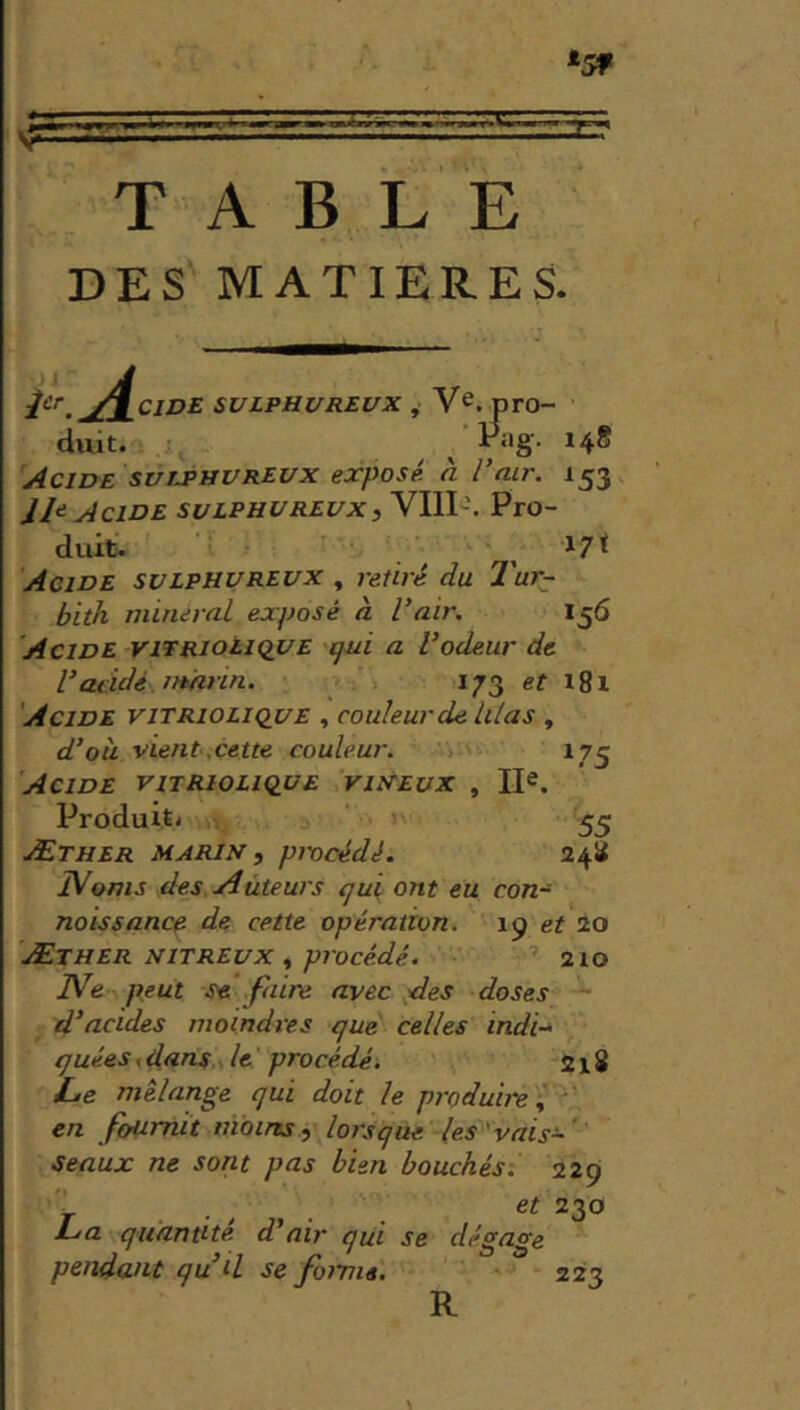 TABLE
DES MATIERES.
Ier. ACIDE SULPHUREUX , Ve. pro-
duit. Pag. 148
ACIDE SULPHUREUX exposé à l'air. 153
IIe ACIDE SULPHUREUX, VIIIe. Pro-
duit. 171
ACIDE SULPHUREUX , retiré du Tur-
bith minéral exposé à l'air. 156
ACIDE VITRIOLIQUE qui a l'odeur de
l'acide marin. 173 et 181
ACIDE VITRIOLIQUE , couleur de lilas ,
d'où vient cette couleur. 175
ACIDE VITRIOLIQUE VINEUX , IIe.
Produit. 55
ÆTHER MARIN, procédé. 248
Noms des Auteurs qui ont eu con-
noissance de cette opération. 19 et 20
ÆTHER NITREUX , procédé. 210
Ne peut se faire avec des doses
d'acides moindres que celles indi-
quées dans le procédé. 218
Le mêlange qui doit le produire,
en fournit moins, lorsque les vais-
seaux ne sont pas bien bouchés. 229
et 230
La quantité d'air qui se dégage
pendant qu'il se forme. 223
R